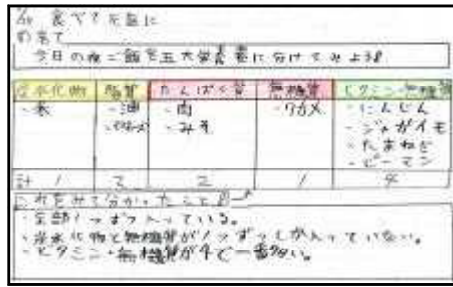 食べて元気に
めあて
今日の夜ご飯を五大栄養素に分けてみよう
炭水化物 脂質 たんぱく質 無機質 ビタミン・無機質
・米 ・油 ・肉 ・ワカメ ・にんじん
・マヨネーズ ・みそ ・ジャガイモ
・たまねぎ
・ピーマン
計 1 2 2 1 4
これをみて分かったこと
・全部1つずつ入っている。
・炭水化物と無機質が1つずつしか入っていない。
・ビタミン・無機質が4で一番多い。